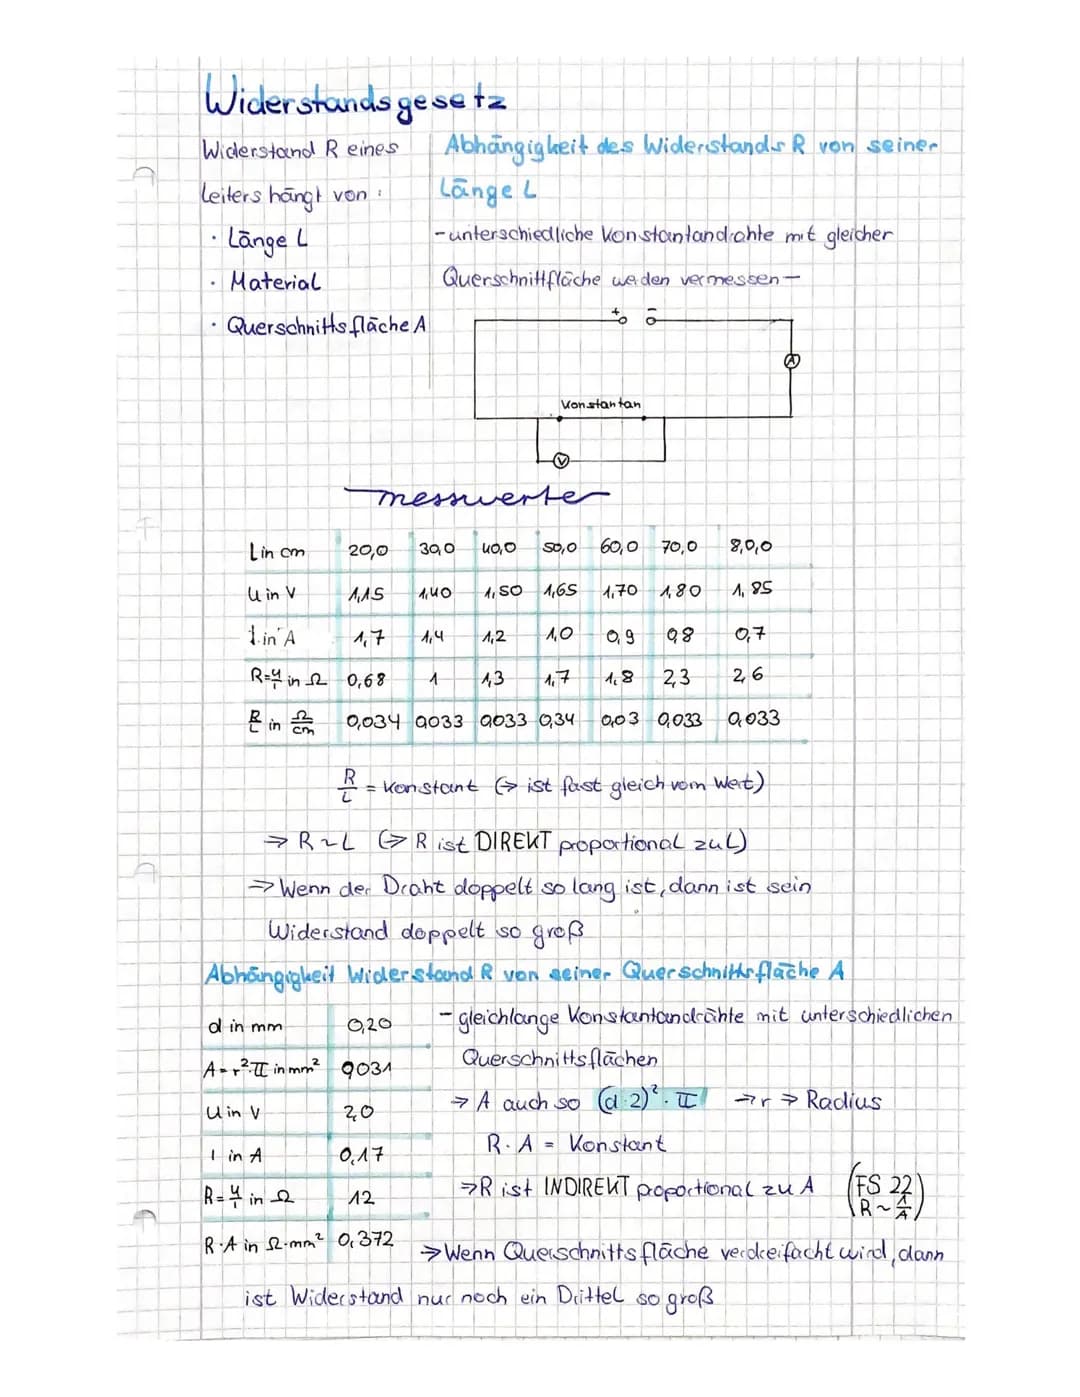 Widerstandsgesetz
Widerstand R eines
Leiters hängt von :
· Länge L
· Material
· Querschnittsfläche A
Abhängigkeit des Widerstands R von seiner
Länge L
- unterschiedliche Konstantandrähte mit gleicher
Querschnittfläche werden vermessen -
+ -
A
Konstantan
V
messwerte
L in cm 20,0 30,0 40,0 50,0 60,0 70,0 8,0,0
U in V 1,15 1,40 1,50 1,65 1,70 1,80 1,85
I in A 1,7 1,4 1,2 1,0 0,9 0,8 0,7
R=U/I in Ω 0,68 1 1,3 1,7 1,8 2,3 2,6
R/L in Ω/cm 0,034 0,033 0,033 0,34 0,03 0,033 0,033
R/L = konstant (→ ist fast gleich vom Wert)
⇒ R ~ L (⇒ R ist DIREKT proportional zu L)
⇒ Wenn der Draht doppelt so lang ist, dann ist sein
Widerstand doppelt so groß
Abhängigkeit Widerstand R von seiner Querschnittsfläche A
d in mm 0,20
A=r²·π in mm² 0,031
U in V 2,0
I in A 0,17
R=U/I in Ω 12
R·A in Ω·mm² 0,372
- gleichlange Konstantandrähte mit unterschiedlichen
Querschnittsflächen
→ A auch so (d:2)²·π → r ⇒ Radius
R·A = Konstant
⇒ R ist INDIREKT proportional zu A (FS 22 R ~ 1/A)
⇒ Wenn Querschnittsfläche verdreifacht wird, dann
ist Widerstand nur noch ein Drittel so groß